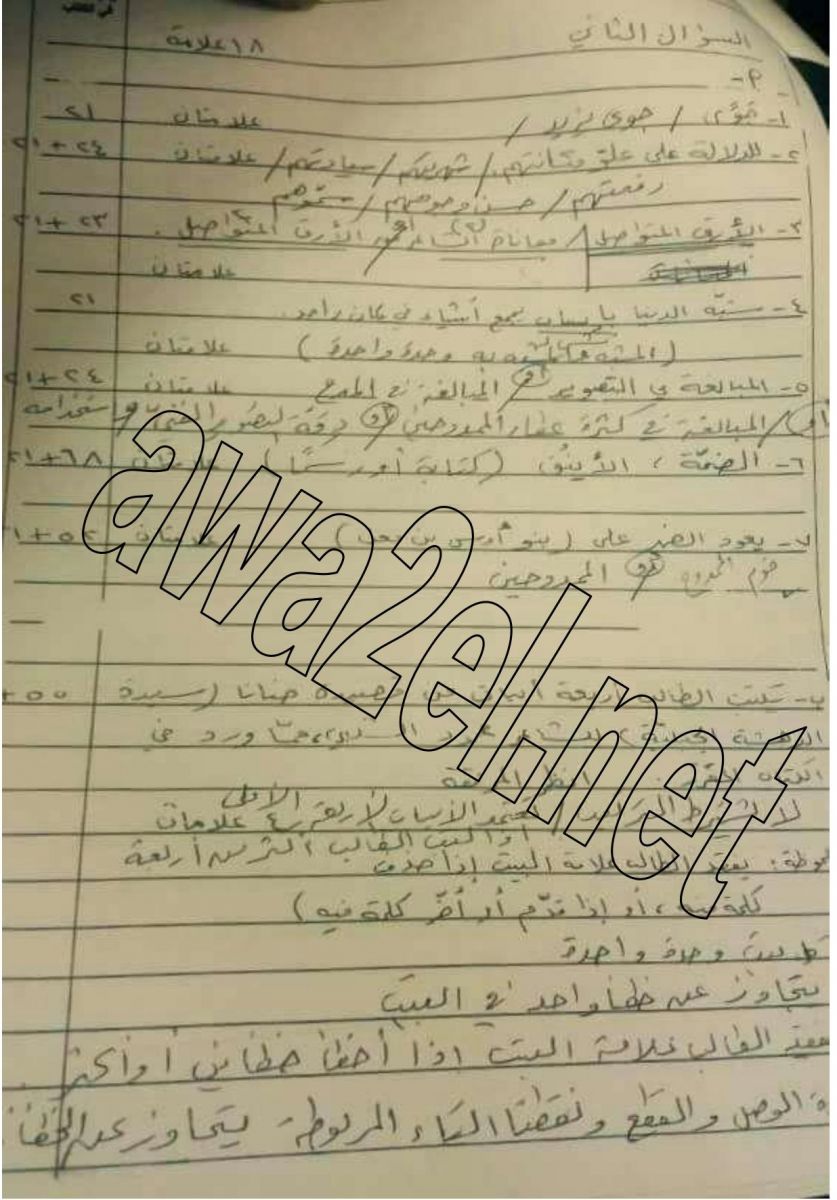 السؤال الثاني ١٨ علامة
٩-
١- جوى / جوى يزيد / علامتان ٢١
٢- للدلالة على علو مكانتهم / شهرتهم / سيادتهم / علامتان ٢٤ + ٢١
رفعتهم / حسن وجوههم / سموهم
٣- الأرق المتواصل / معاناة الشاعر الأرق المتواصل . ٢٣ + ٢١
علامتان
٤- شبّه الدنيا بإنسان يجمع أشياء في مكان واحد. ٢١
(المشبه والمشبه به وحدة واحدة) علامتان
٥- المبالغة في التصوير أو المبالغة في المدح علامتان ٢٤ + ٢١
أو / المبالغة في كثرة عطاء الممدوحين أو دقة التصوير الفني / استخدامه
٦- الضمّة ، الأينُق (كتابة أو رسمًا) علامتان ٦٨ + ٢١
٧- يعود الضمير على (بنو أوس بن) علامتان ٥٢ +
قوم الممدوح أو الممدوحين
ب- يكتب الطالب أربعة أبيات من قصيدة (سيدة ٥٥ +
للشاعر ممّا ورد في
الكتاب المقرر. انظر
لا يشترط الترتيب / تعتمد الأبيات الأربعة الأولى ٤ علامات
إذا كتب الطالب أكثر من أربعة
يفقد الطالب علامة البيت إذا حذف
كلمة منه ، أو إذا قدّم أو أخّر كلمة فيه)
كل بيت وحدة واحدة
يتجاوز عن خطأ واحد في البيت
يفقد الطالب علامة البيت إذا أخطأ خطأين أو أكثر .
الوصل والقطع ونقطتا التاء المربوطة يتجاوز عن الخطأ
awa2el.net